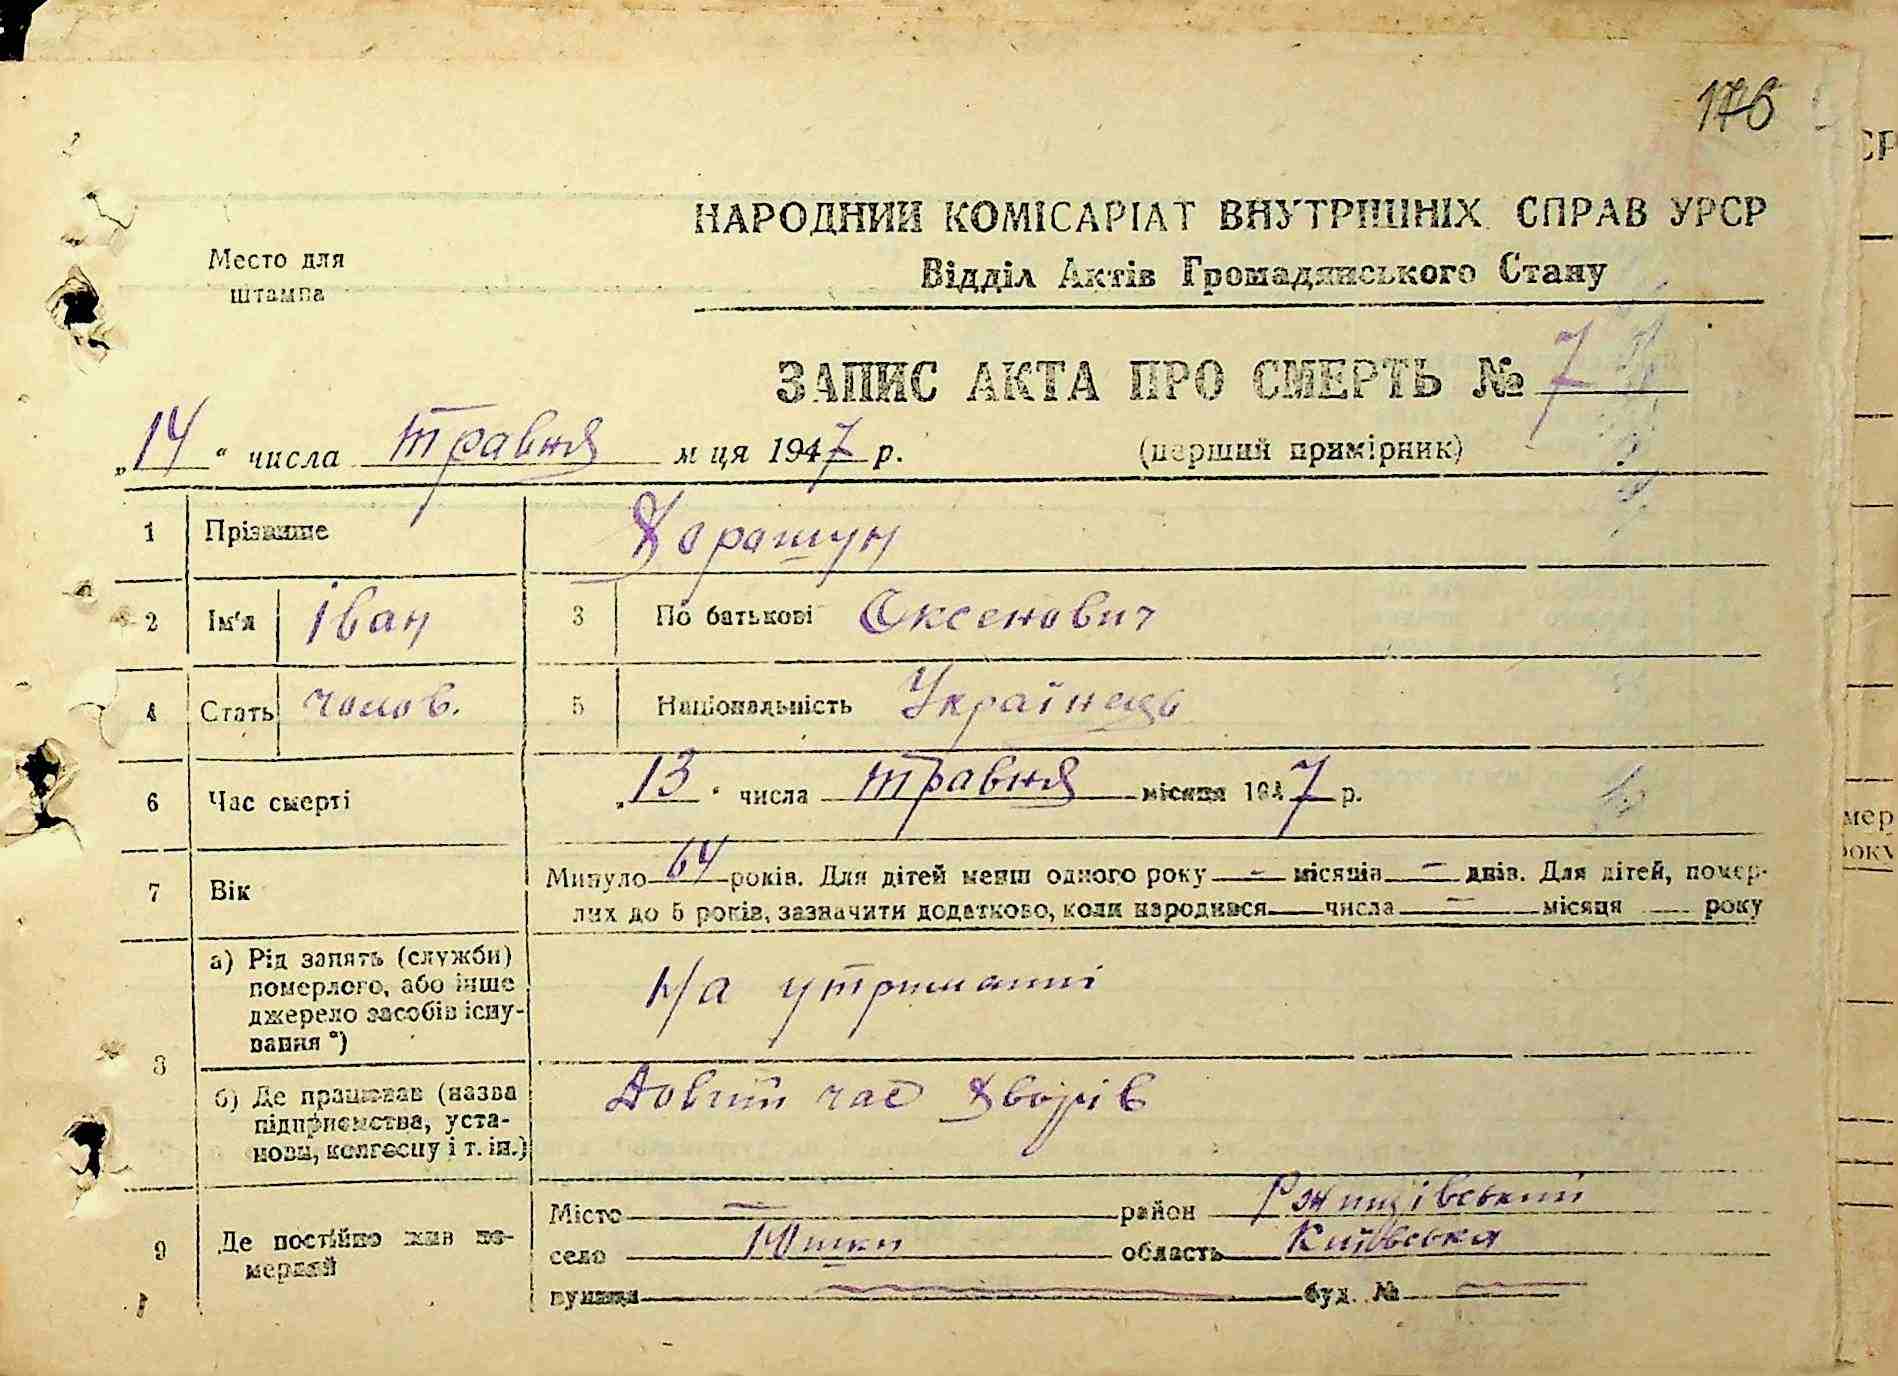 176
НАРОДНИЙ КОМІСАРІАТ ВНУТРІШНІХ СПРАВ УРСР
Место для
штампа
Відділ Актів Громадянського Стану
ЗАПИС АКТА ПРО СМЕРТЬ № 7
„14“ числа травня м-ця 1947 р. (перший примірник)
1 Прізвище Дорошун
2 Ім'я Іван 3 По батькові Оксенович
4 Стать чолов. 5 Національність Українець
6 Час смерті „13“ числа травня місяця 1947 р.
7 Вік Минуло 64 років. Для дітей менш одного року — місяців — днів. Для дітей, помер-
лих до 5 років, зазначити додатково, коли народився — числа — місяця — року
8 а) Рід занять (служби)
померлого, або інше
джерело засобів існу-
вання *)
На утриманні
б) Де працював (назва
підприємства, уста-
нови, колгоспу і т. ін.)
час
9 Де постійно жив по-
мерлий
Місто — район Ржищівський
село Юшки область Київська
вулиця — буд. № —